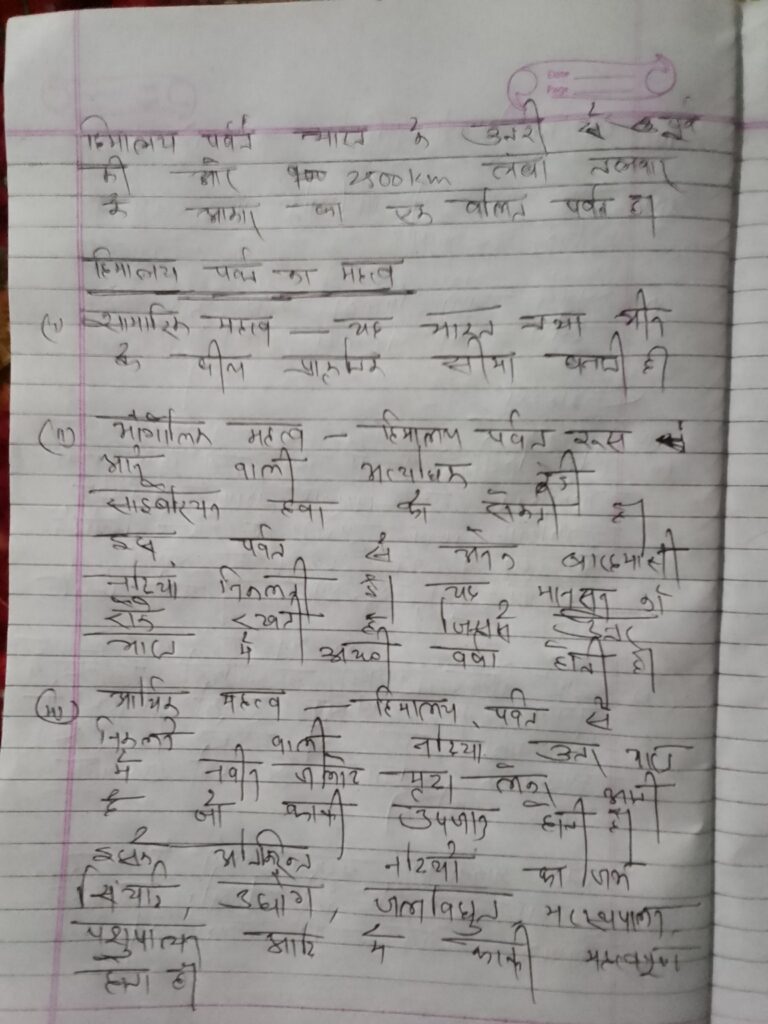 Date
Page
हिमालय पर्वत भारत के उत्तरी से पूर्व
की ओर 2500 km लंबा तलवार
के आकार का एक वलित पर्वत है।
हिमालय पर्वत का महत्व
(i) सामरिक महत्व — यह भारत तथा चीन
के बीच प्राकृतिक सीमा बनाती है
(ii) भौगोलिक महत्व — हिमालय पर्वत रूस से
आने वाली अत्याधिक ठंडी
साइबेरियन हवा को रोकती है।
इस पर्वत से अनेक बारहमासी
नदियां निकलती है। यह मानसून को
रोक रखती है जिससे उत्तर
भारत में अच्छी वर्षा होती है।
(iii) आर्थिक महत्व — हिमालय पर्वत से
निकलने वाली नदियां उत्तर भारत
में नवीन जलोढ़ मृदा लेकर आती
है जो काफी उपजाऊ होती है।
इसके अतिरिक्त नदियों का जल
सिंचाई, उद्योग, जलविद्युत, मत्स्यपालन,
पशुपालन आदि में काफी महत्वपूर्ण
होता है।